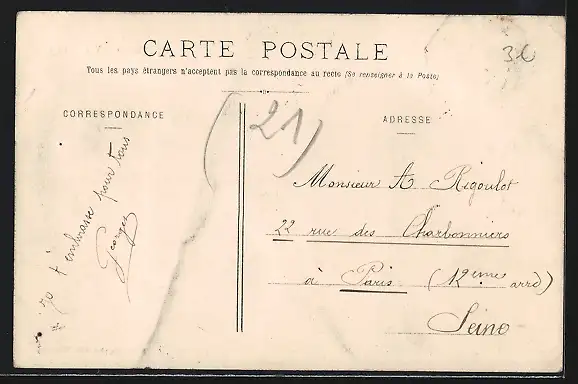 CARTE POSTALE
Tous les pays étrangers n'acceptent pas la correspondance au recto (Se renseigner à la Poste)
CORRESPONDANCE
ADRESSE
(21)
t'embrasse pour tous
Georges
Monsieur A Rigoulot
22 rue des Charbonniers
à Paris (12ème arrd)
Seine